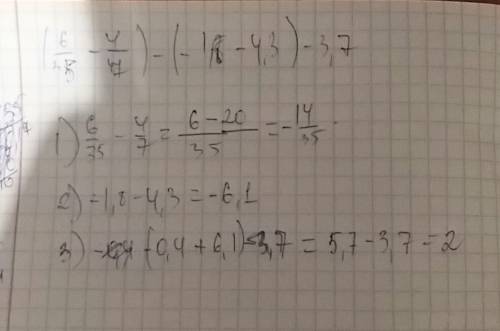 (6/35 - 4/7) - (-1,8 - 4,3) - 3,7
1) 6/35 - 4/7 = 6-20/35 = -14/35
2) =1,8-4,3 = -6,1
3) (-0,4+6,1)-3,7 = 5,7-3,7=2